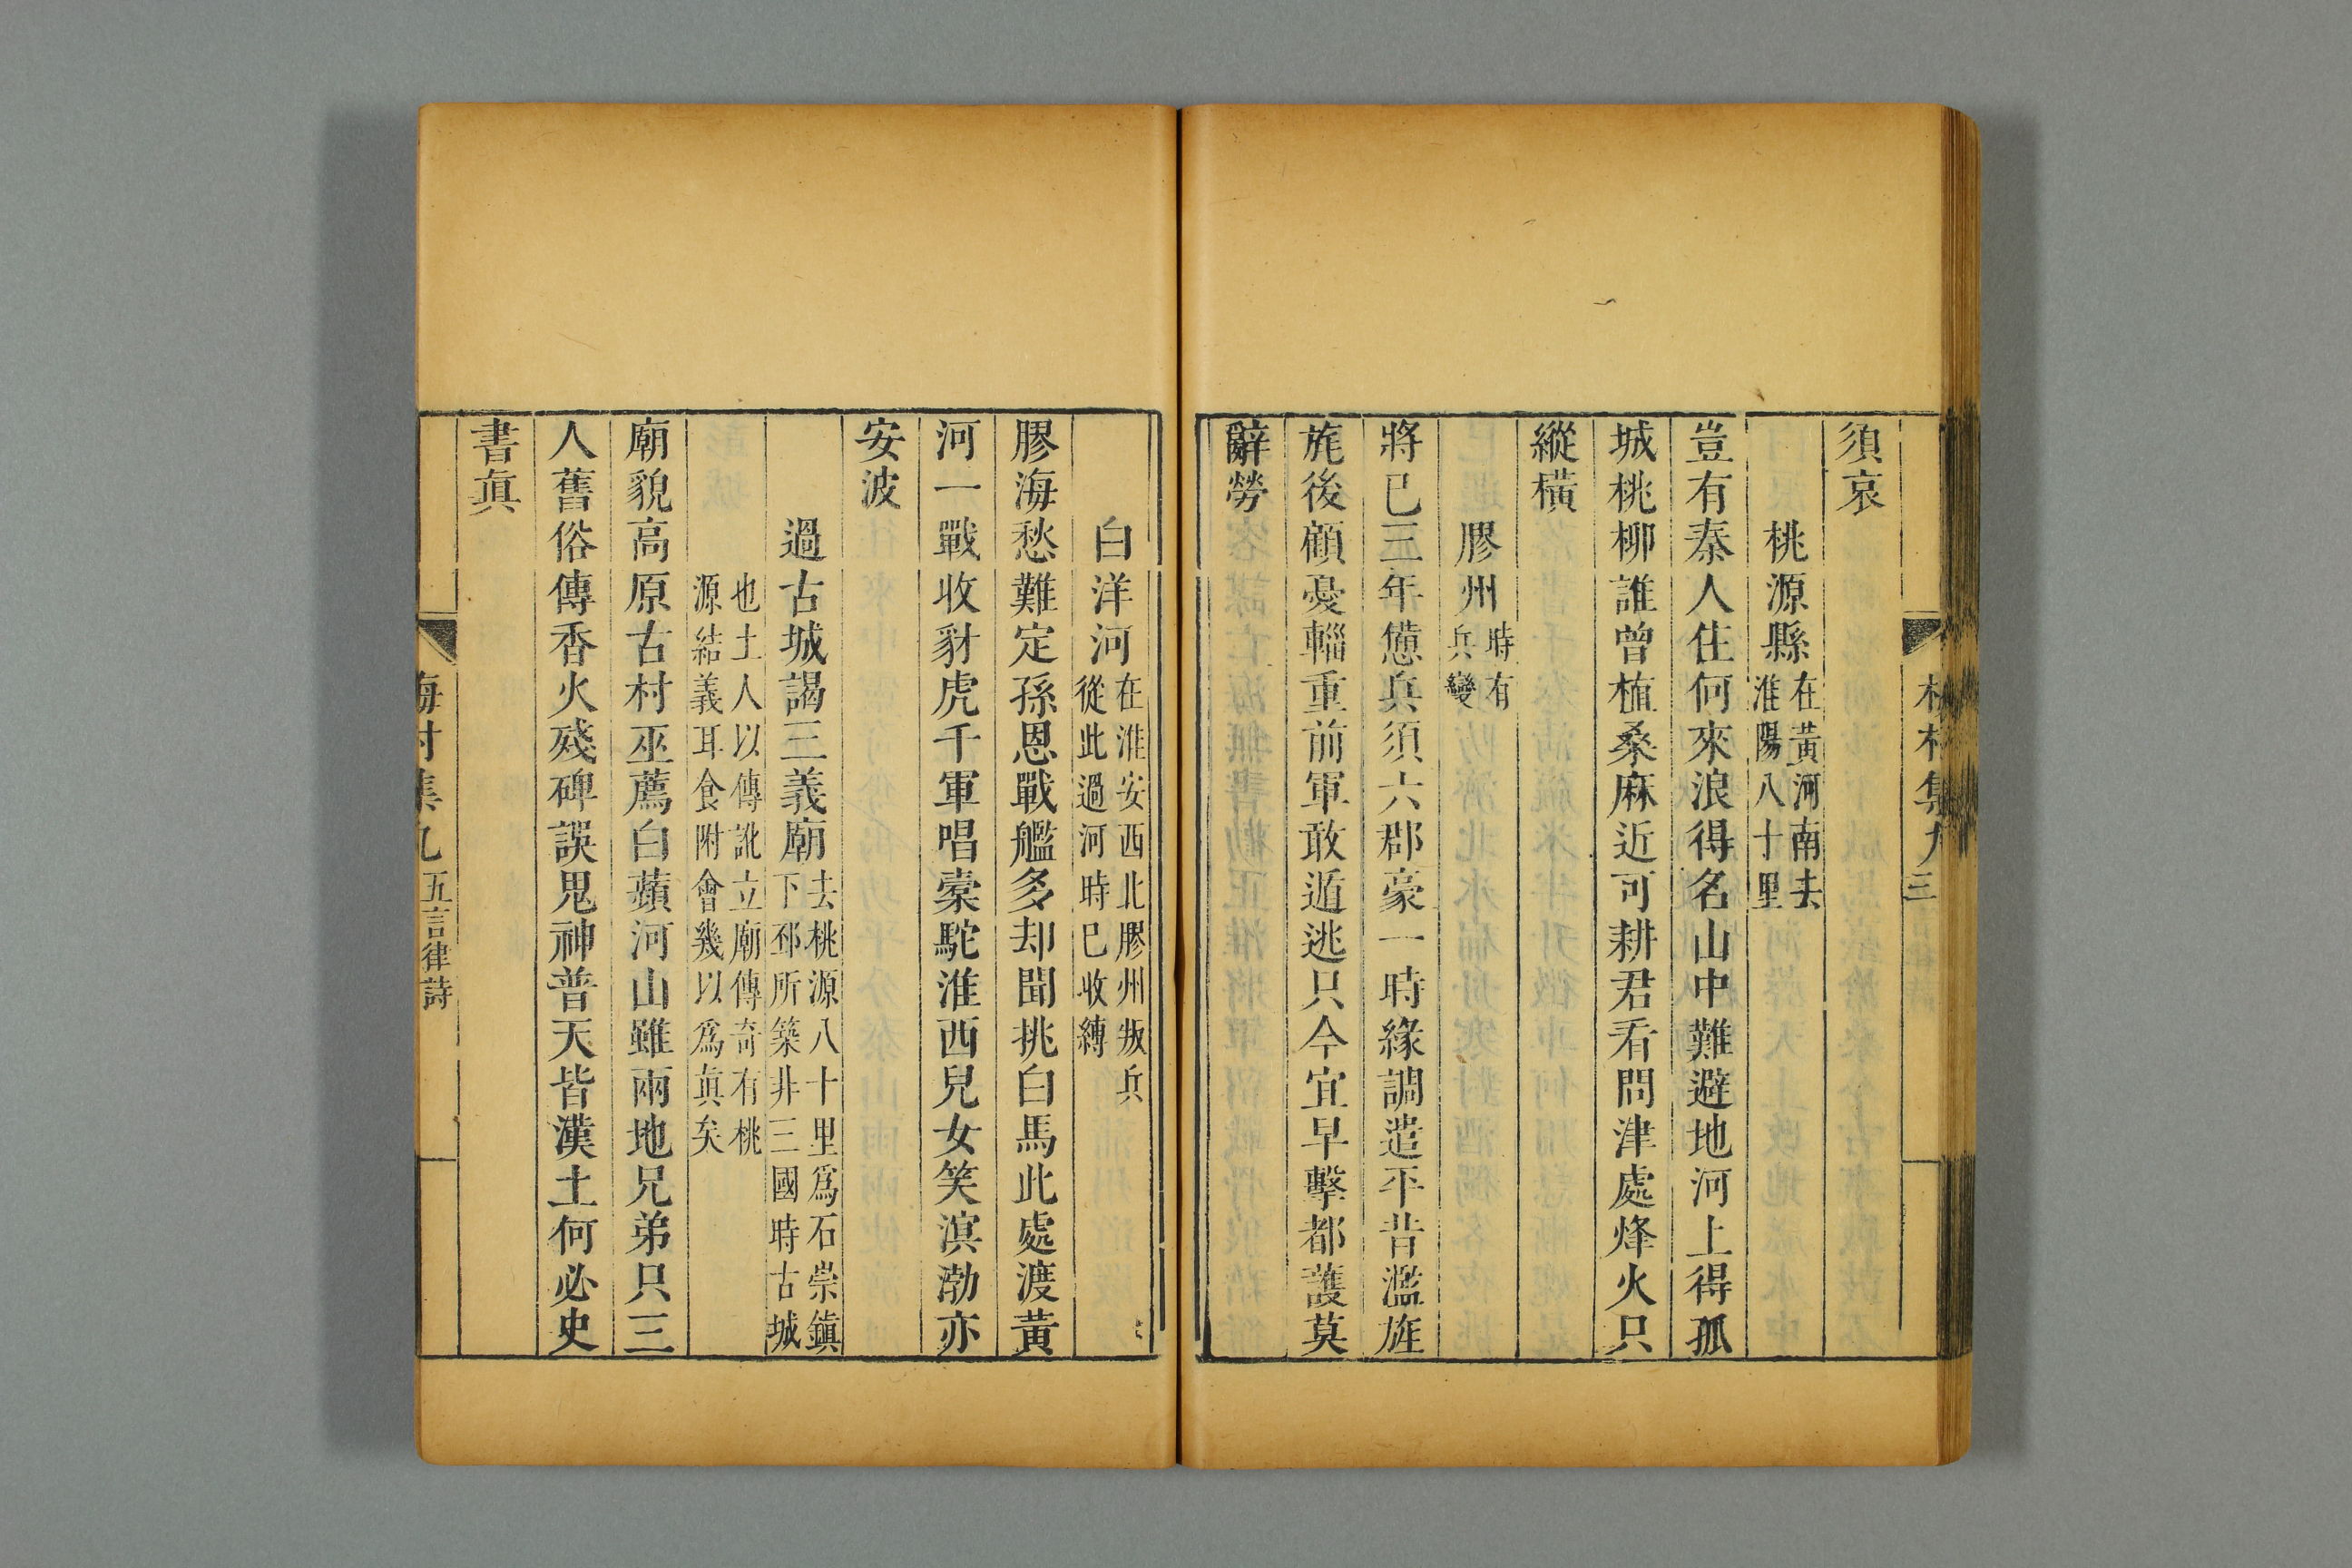 須哀
桃源縣在黃河南去淮陽八十里
豈有秦人住何來浪得名山中難避地河上得孤
城桃柳誰曾植桑麻近可耕君看問津處烽火只
縱橫
膠州時有兵變
將已三年憊兵須六郡豪一時緣調遣平昔濫旌
旄後顧憂輜重前軍敢遁逃只今宜早擊都護莫
辭勞
白洋河在淮安西北膠州叛兵從此過河時已收縛
膠海愁難定孫恩戰艦多却聞挑白馬此處渡黃
河一戰收豺虎千軍唱橐駝淮西兒女笑溟渤亦
安波
過古城謁三義廟去桃源八十里爲石崇鎮下邳所築非三國時古城
也土人以傳訛立廟傳奇有桃源結義耳食附會幾以爲眞矣
廟貌高原古村巫薦白蘋河山雖兩地兄弟只三
人舊俗傳香火殘碑誤鬼神普天皆漢土何必史
書眞
梅村集九 五言律詩